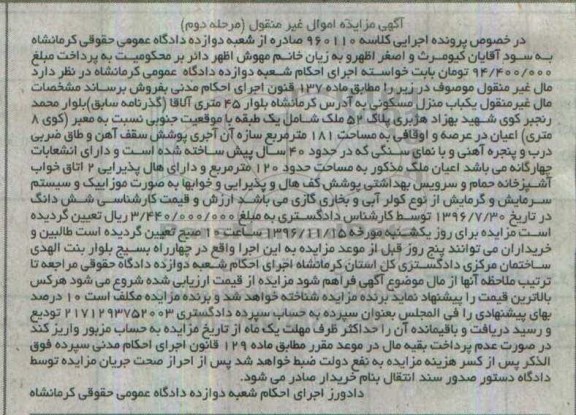 آگهی مزایده اموال غیر منقول (مرحله دوم)
در خصوص پرونده اجرایی کلاسه ۹۶۰۱۱۰ صادره از شعبه دوازده دادگاه عمومی حقوقی کرمانشاه
به سود آقایان کیومرث و اصغر اظهر و به زیان خانم مهوش اظهر دائر بر محکومیت به پرداخت مبلغ
۹۴/۴۰۰/۰۰۰ تومان بابت خواسته اجرای احکام شعبه دوازده دادگاه عمومی کرمانشاه در نظر دارد
مال غیر منقول موصوف در زیر را مطابق ماده ۱۳۷ قانون اجرای احکام مدنی بفروش برساند مشخصات
مال غیرمنقول یکباب منزل مسکونی به آدرس کرمانشاه بلوار ۴۵ متری آلاقا (گذرنامه سابق)بلوار محمد
رنجبر کوی شهید بهزاد هژبری پلاک ۵۲ ملک شامل یک طبقه با موقعیت جنوبی نسبت به معبر (کوی ۸
متری) اعیان در عرصه و اوقافی به مساحت ۱۸۱ مترمربع سازه آن آجری پوشش سقف آهن و طاق ضربی
درب و پنجره آهنی و با نمای سنگی که در حدود ۴۰ سال پیش ساخته شده است و دارای انشعابات
چهارگانه می باشد اعیان ملک مذکور به مساحت حدود ۱۲۰ مترمربع و دارای هال پذیرایی ۲ اتاق خواب
آشپزخانه حمام و سرویس بهداشتی پوشش کف هال و پذیرایی و خوابها به صورت موزاییک و سیستم
سرمایش و گرمایش از نوع کولر آبی و بخاری گازی می باشد ارزش و قیمت کارشناسی شش دانگ
در تاریخ ۱۳۹۶/۷/۳۰ توسط کارشناس دادگستری به مبلغ ۳/۴۴۰/۰۰۰/۰۰۰ ریال تعیین گردیده
است مزایده برای روز یکشنبه مورخه ۱۳۹۶/۱۱/۱۵ ساعت ۱۰ صبح تعیین گردیده است طالبین و
خریداران می توانند پنج روز قبل از موعد مزایده به این اجرا واقع در چهارراه بسیج بلوار بنت الهدی
ساختمان مرکزی دادگستری کل استان کرمانشاه اجرای احکام شعبه دوازده دادگاه حقوقی مراجعه تا
ترتیب ملاحظه آنها از مال موضوع آگهی فراهم شود مزایده از قیمت ارزیابی شده شروع می شود هرکس
بالاترین قیمت را پیشنهاد نماید برنده مزایده شناخته خواهد شد و برنده مزایده مکلف است ۱۰ درصد
بهای پیشنهادی را فی المجلس بعنوان سپرده به حساب سپرده دادگستری ۲۱۷۱۲۹۳۷۵۲۰۰۳ تودیع
و رسید دریافت و باقیمانده آن را حداکثر ظرف مهلت یک ماه از تاریخ مزایده به حساب مزبور واریز کند
در صورت عدم پرداخت بقیه مال در موعد مقرر مطابق ماده ۱۲۹ قانون اجرای احکام مدنی سپرده فوق
الذکر پس از کسر هزینه مزایده به نفع دولت ضبط خواهد شد پس از احراز صحت جریان مزایده توسط
دادگاه دستور صدور سند انتقال بنام خریدار صادر می شود.
دادورز اجرای احکام شعبه دوازده دادگاه عمومی حقوقی کرمانشاه